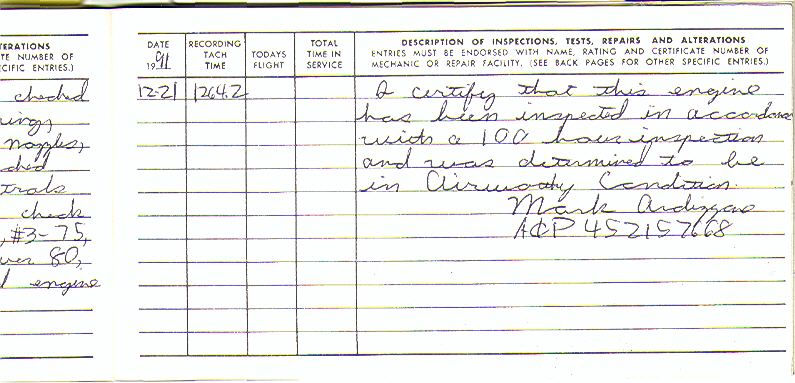 ERATIONS
TE NUMBER OF
CIFIC ENTRIES.)
checked
nozzles,
trols
check
, #3-75,
80,
engine
DATE
1991
RECORDING
TACH
TIME
TODAYS
FLIGHT
TOTAL
TIME IN
SERVICE
DESCRIPTION OF INSPECTIONS, TESTS, REPAIRS AND ALTERATIONS
ENTRIES MUST BE ENDORSED WITH NAME, RATING AND CERTIFICATE NUMBER OF
MECHANIC OR REPAIR FACILITY. (SEE BACK PAGES FOR OTHER SPECIFIC ENTRIES.)
12-21 1264.2 I certify that this engine
has been inspected in accordance
with a 100 hour inspection
and was determined to be
in Airworthy Condition.
Mark
A&P 452157668